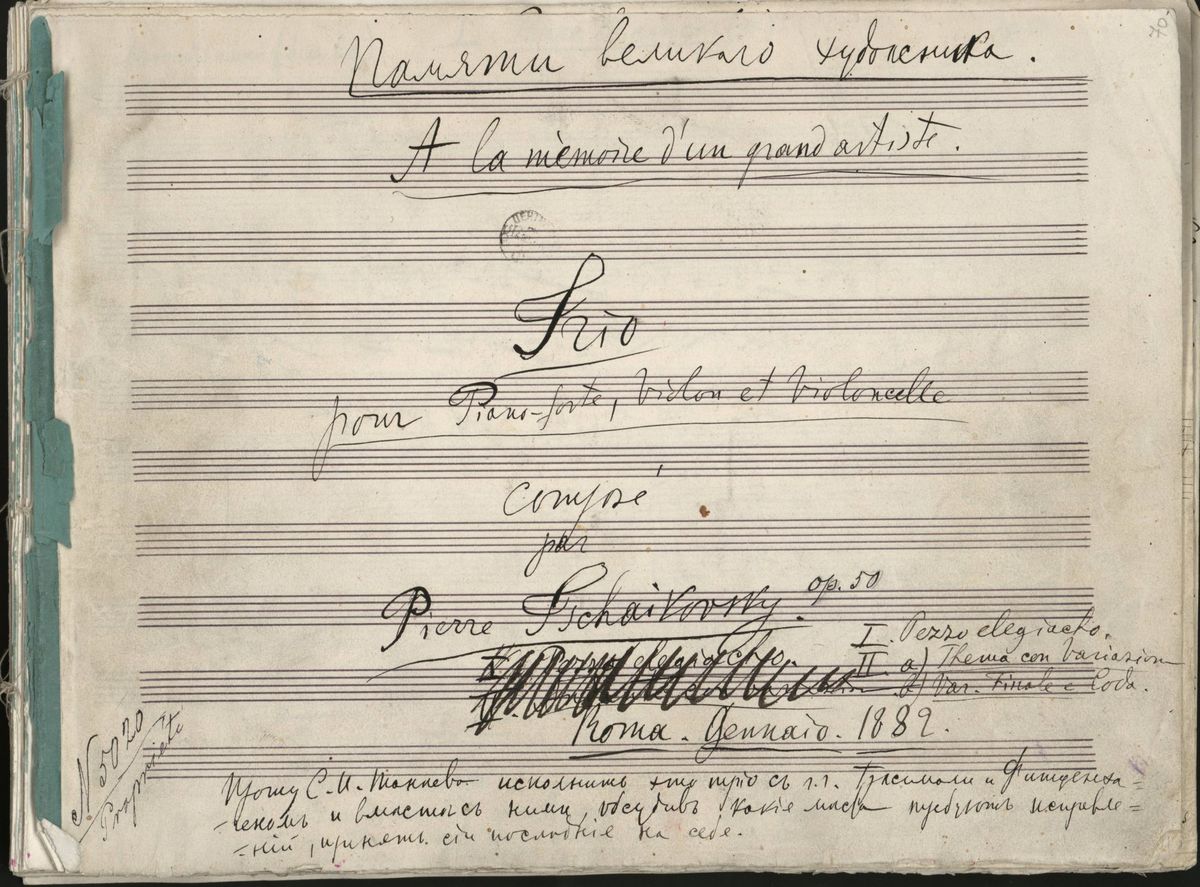 70
Памяти великаго художника.
A la mémoire d'un grand artiste.
Trio
pour Piano-forte, Violon et Violoncelle
composé
par
Pierre Tschaikovsky. op. 50
I. Pezzo elegiacho.
II a) Thema con Variazioni
b) Var. Finale e Coda.
Roma. Gennaio. 1882.
N 5020
Propriété
Прошу С. И. Танѣева исполнить это трiо съ г.г. Гржимали и Фитценха-
-геномъ и вмѣстѣ съ ними, обсудивъ какiе мѣста требуютъ исправле=
=нiй, принять сiи послѣднiе на себя.